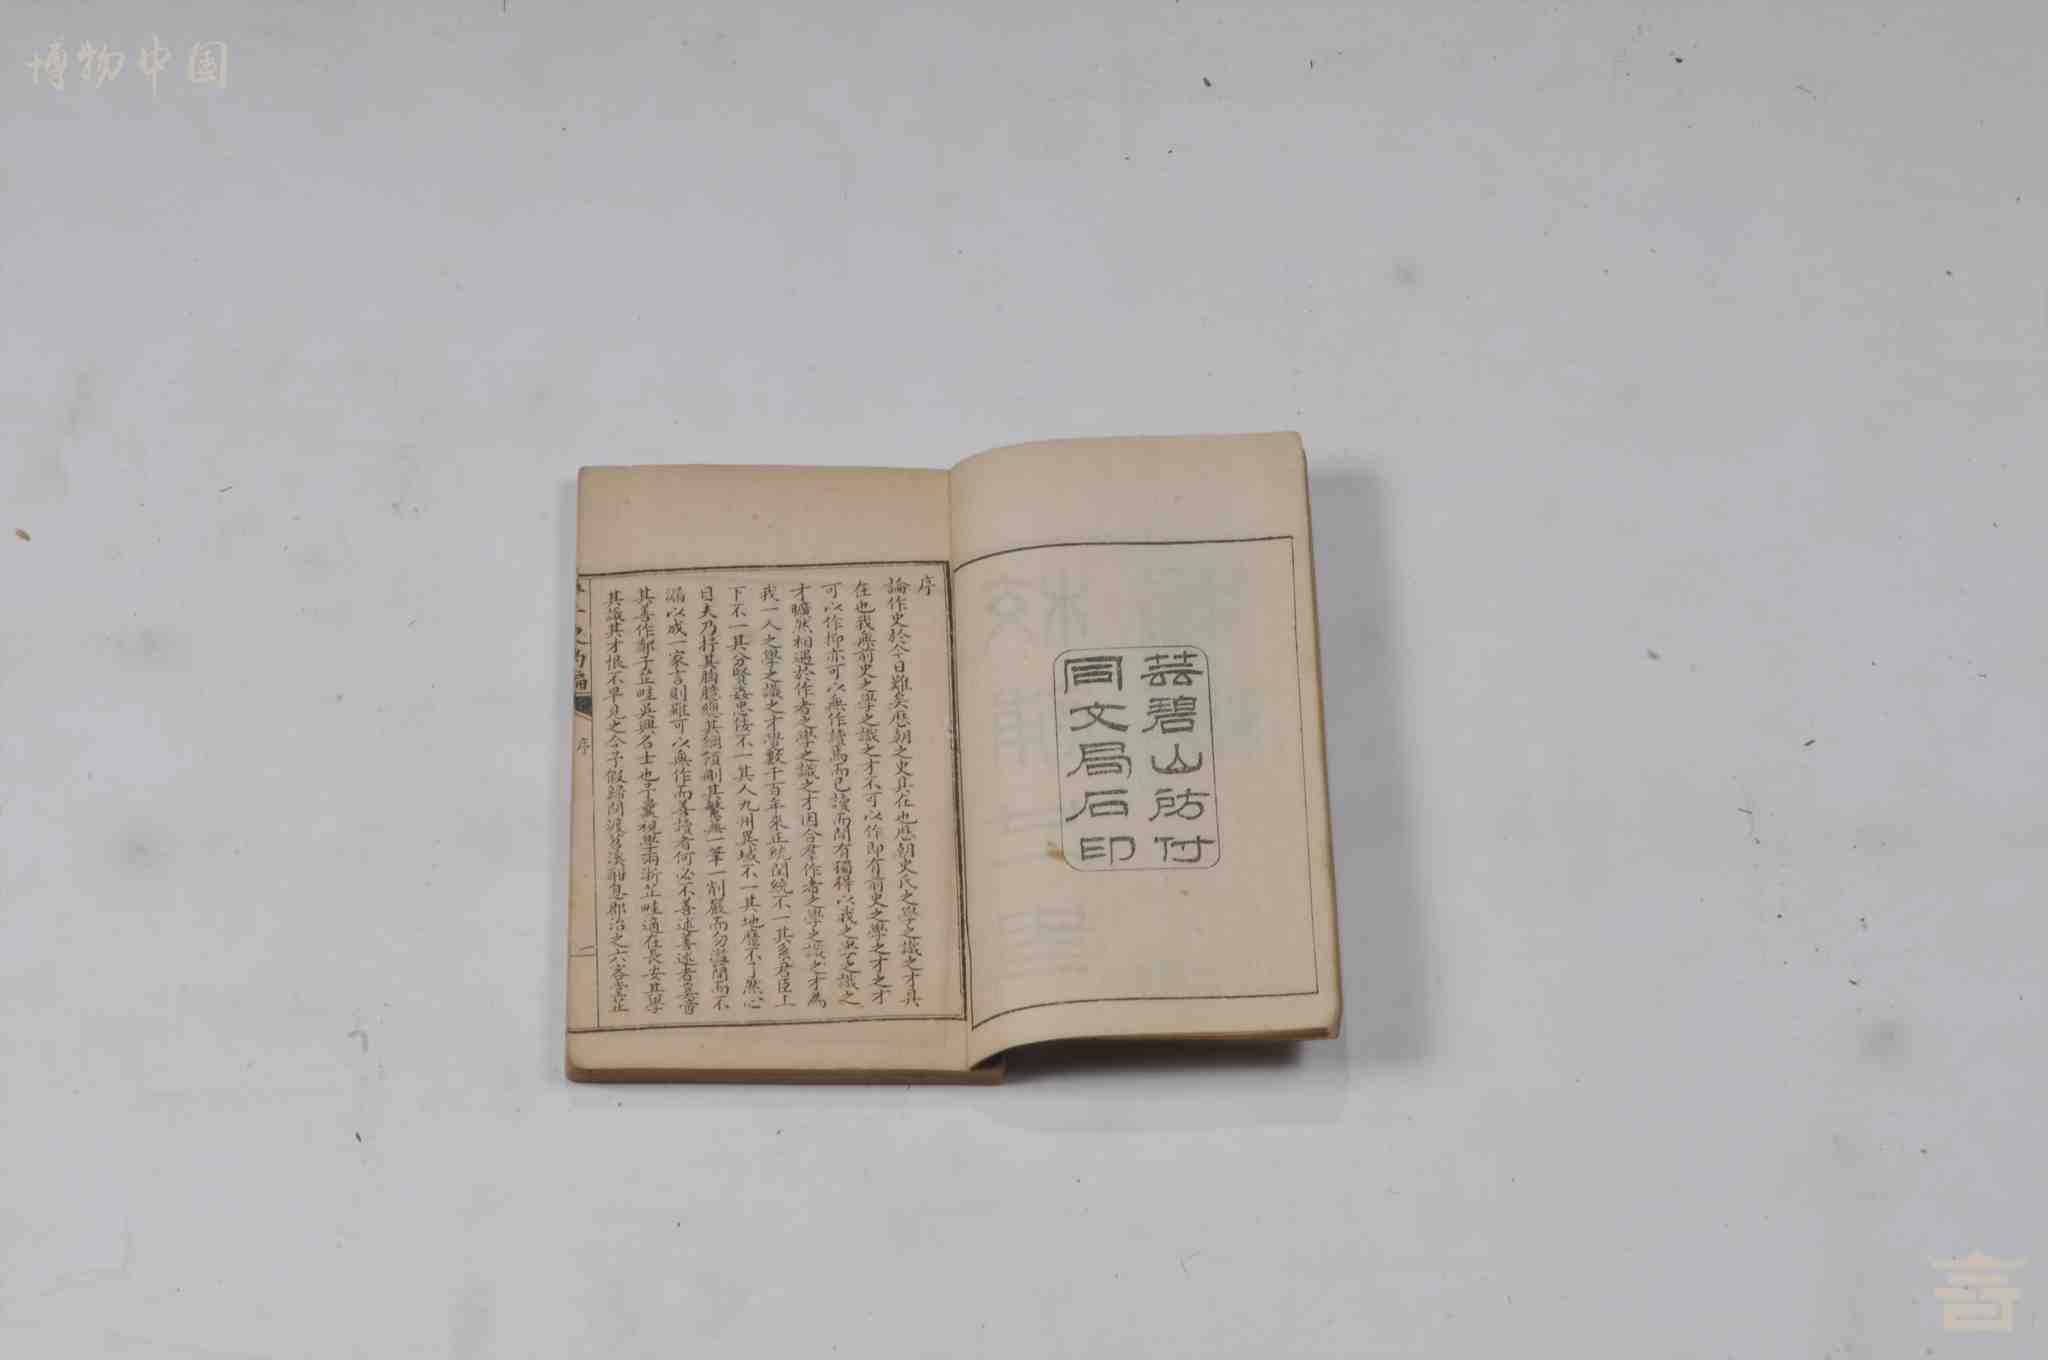 博物中国
芸碧山房付
同文局石印
序
論作史於今日難矣歷朝之史具在也歷朝史氏之學之識之才具
在也我無前史之學之識之才不可以作即有前史之學之才之才
可以作抑亦可以無作讀焉而已讀而間有獨得以我之學之識之
才曠然相遇於作者之學之識之才因合羣作者之學之識之才為
我一人之學之識之才覺數千百年來正統閏統不一其系君臣上
下不一其分賢姦忠佞不一其人九州異域不一其地靡不了然心
目夫乃抒其胸臆總其綱領刪其繁蕪一筆一削嚴而勿濫簡而不
漏以成一家言則雖可以無作而善讀者何必不善述善述者奚啻
其善作鄭子芷畦吳興名士也予曩視學兩浙芷畦適在長安其學
其識其才恨不早見之今予假歸閒渡苕溪郡治之六客堂芷
序
二